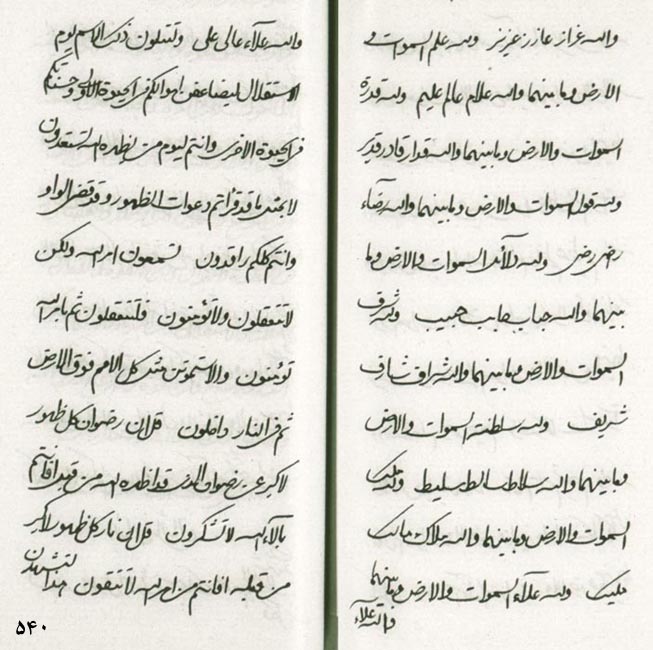 والله عزاز عازز عزيز ولله علم السموات و
الارض وما بينهما والله علام عالم عليم ولله قدرة
السموات والارض وما بينهما والله قدار قادر قدير
ولله قول السموات والارض وما بينهما والله رضاء
راضى رضى ولله السموات والارض وما
بينهما والله حباب حابب حبيب ولله شرف
السموات والارض وما بينهما والله شراف شارف
شريف ولله سلطنة السموات والارض
وما بينهما والله سلاط سالط سليط ولله ملك
السموات والارض وما بينهما والله ملاك مالك
مليك ولله علاء السموات والارض وما بينهما
والله علاء
والله علاء عالى على ولتتلون ذلك الاسم يوم
الاستقلال ليضاعفن ابهائكم فى الحيوة الاولى
فى الحيوة الاخرى وانتم ليوم من يظهره الله لتستعدون
لا بمثل ما قد قرأتم دعوات الظهور وقد قضى الواو
وانتم كلكم راقدون لتسمعون امر الله ولكن
لا تتعقلون ولا تؤمنون فلتتعقلون ثم بامر الله
تؤمنون والا لتموتن مثل كل الامم فوق الارض
ثم فى النار داخلون قل ان رضوان كل ظهور
لاكبر عن رضوان الذى قد اظهره الله من قبل افانتم
بآلاء الله لا تشكرون قل ان نار كل ظهور لاكبر
من قبله افانتم من امر الله لا تتقون هذا
۵۴۰